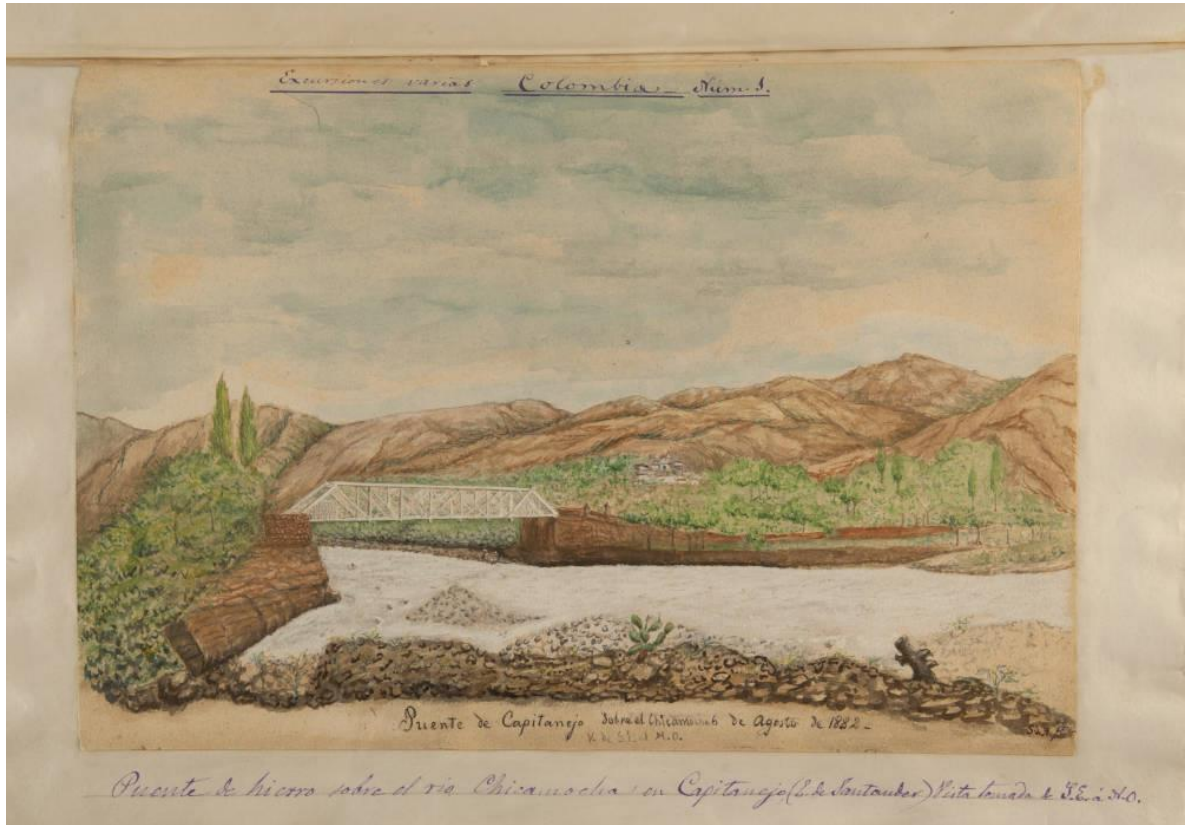 Excursiones varias Colombia - Núm. 1.
Puente de Capitanejo Sobre el Chicamocha 6 de Agosto de 1882 -
V. de S.E. al N.O.
Puente de hierro sobre el rio Chicamocha en Capitanejo (E. de Santander) Vista tomada de S.E. á N.O.